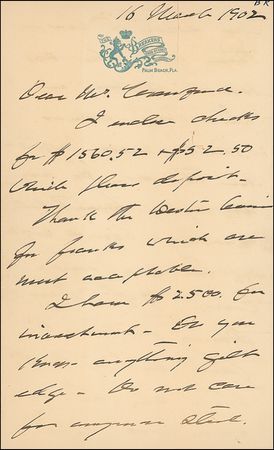 BR
16 March 1902
THE BREAKERS
PALM BEACH, FLA.
Dear Mr. Crawford.
I enclose checks
for $1560.52 + $52.50
which please deposit.
Thank the Western Union
for franks which are
most acceptable.
I have $2500. for
investment - Do you
know anything gilt
edge - Do not care
for